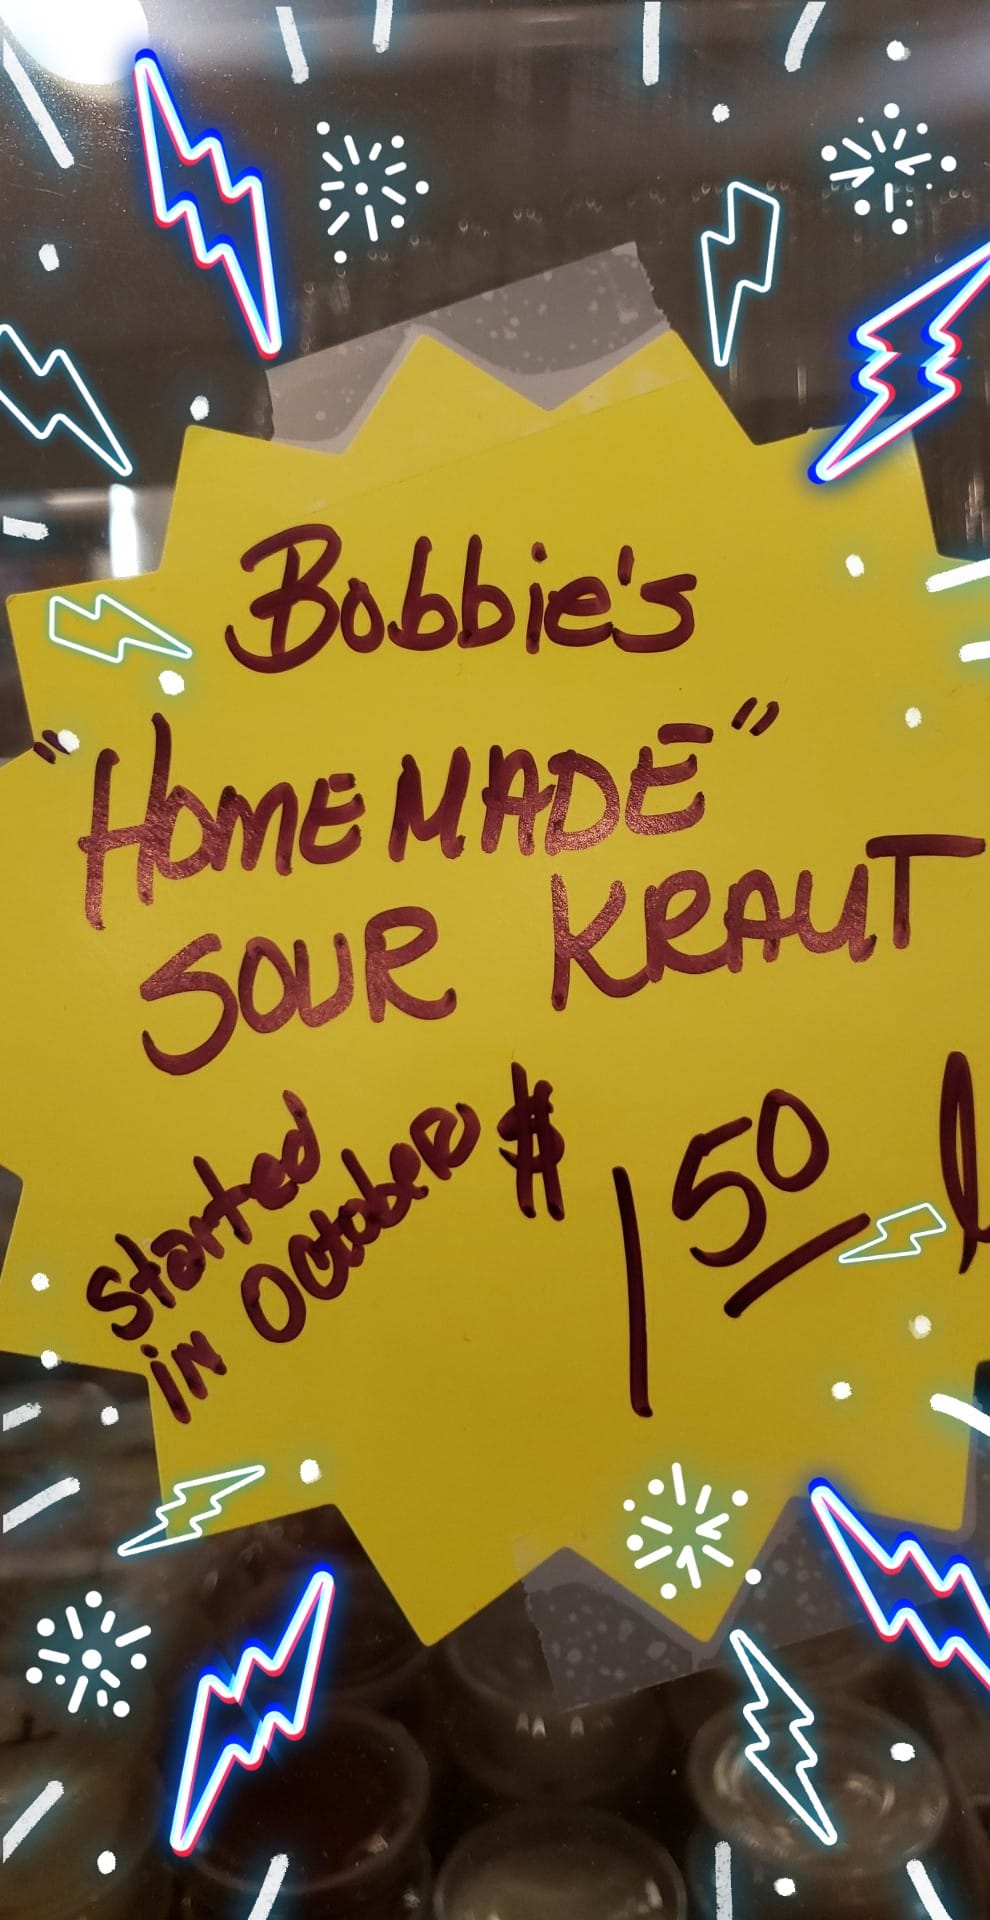 Bobbie's
"HOMEMADE"
SOUR KRAUT
Started
in October
$ 1 50